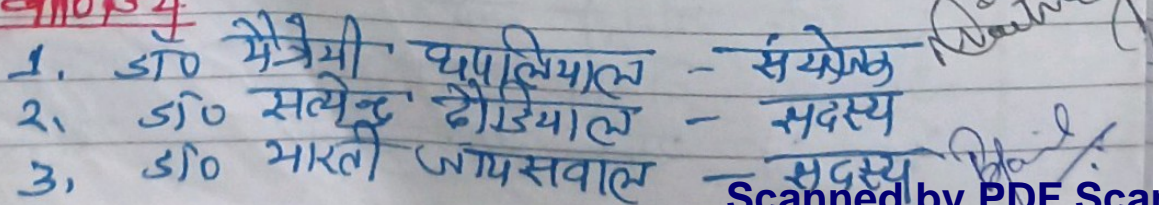 1. डॉ० मैत्रेयी थपलियाल - संयोजक
2. डॉ० सत्येन्द्र ढौडियाल - सदस्य
3. डॉ० भारती जायसवाल - सदस्य
Scanned by PDF Scan